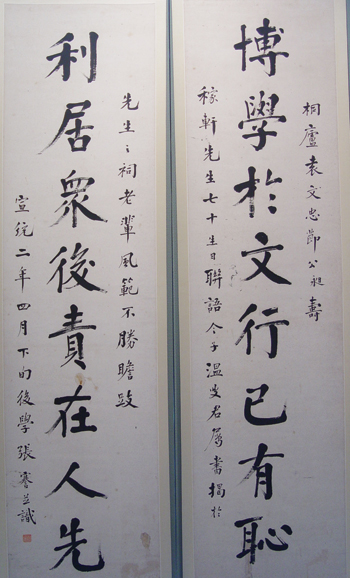 桐廬袁文忠節公昶壽
博學於文行己有恥
稼軒先生七十生日聯語令子溫叟君屬書揭於
先生之祠老輩風範不勝瞻跂
利居衆後責在人先
宣統二年四月下旬後學張謇並識